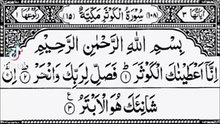 اٰیاتها ٣ (١٠٨) سُوْرَةُ الْكَوْثَرِ مَكِّيَّةٌ (١٥) رکوعها ١
بِسْمِ اللّٰهِ الرَّحْمٰنِ الرَّحِيْمِ
اِنَّاۤ اَعْطَيْنٰكَ الْكَوْثَرَ ۝١ فَصَلِّ لِرَبِّكَ وَانْحَرْ ۝٢ اِنَّ
شَانِئَكَ هُوَ الْاَبْتَرُ ۝٣